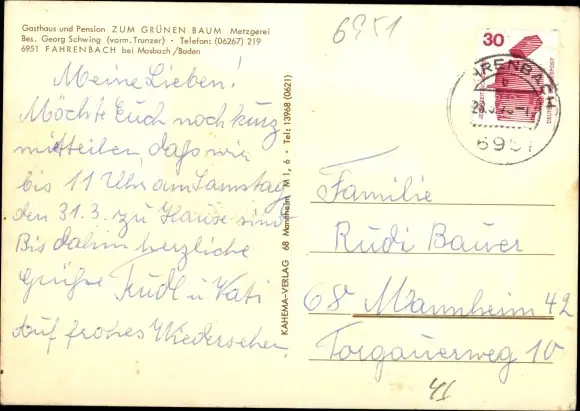 Gasthaus und Pension ZUM GRÜNEN BAUM Metzgerei
Bes. Georg Schwing (vorm. Trunzer) · Telefon: (06267) 219
6951 FAHRENBACH bei Mosbach/Baden
6951
30
DEUTSCHE BUNDESPOST
FAHRENBACH
b
6951
Meine Lieben!
Möchte Euch noch kurz
mitteilen, dass wir
bis 11 Uhr am Samstag
den 31.3. zu Hause sind
Bis dahin herzliche
Grüße Trudl u. Vati
Auf frohes Wiedersehen
KAHEMA-VERLAG 68 Mannheim M 1, 6 · Tel: 13968 (0621)
Familie
Rudi Bauer
68 Mannheim 42
Torgauerweg 10